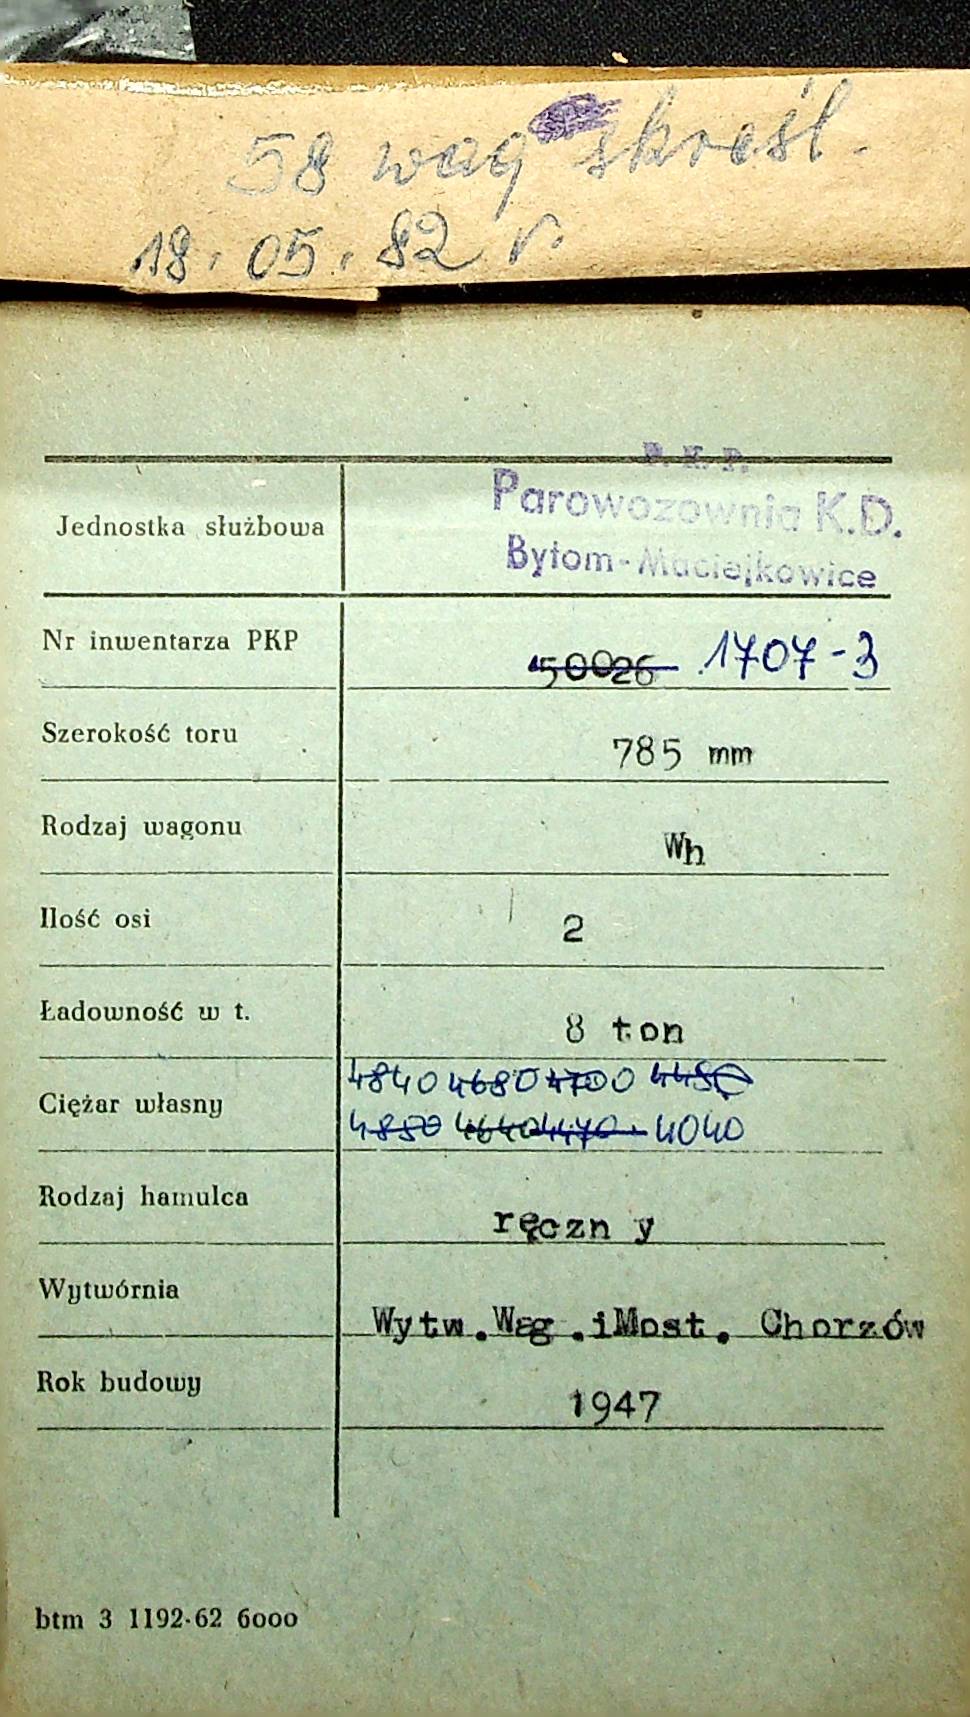 58 wag skreśl.
18.05.82 r.
P.K.P.
Parowozownia K.D.
Bytom-Maciejkowice
Jednostka służbowa
Nr inwentarza PKP 50026 1707-3
Szerokość toru 785 mm
Rodzaj wagonu Wh
Ilość osi 2
Ładowność w t. 8 ton
4840 4680 4700 4480
Ciężar własny
4850 4640 4470 4040
Rodzaj hamulca ręczn y
Wytwórnia Wytw.Wag.iMost. Chorzów
Rok budowy 1947
btm 3 1192-62 6000